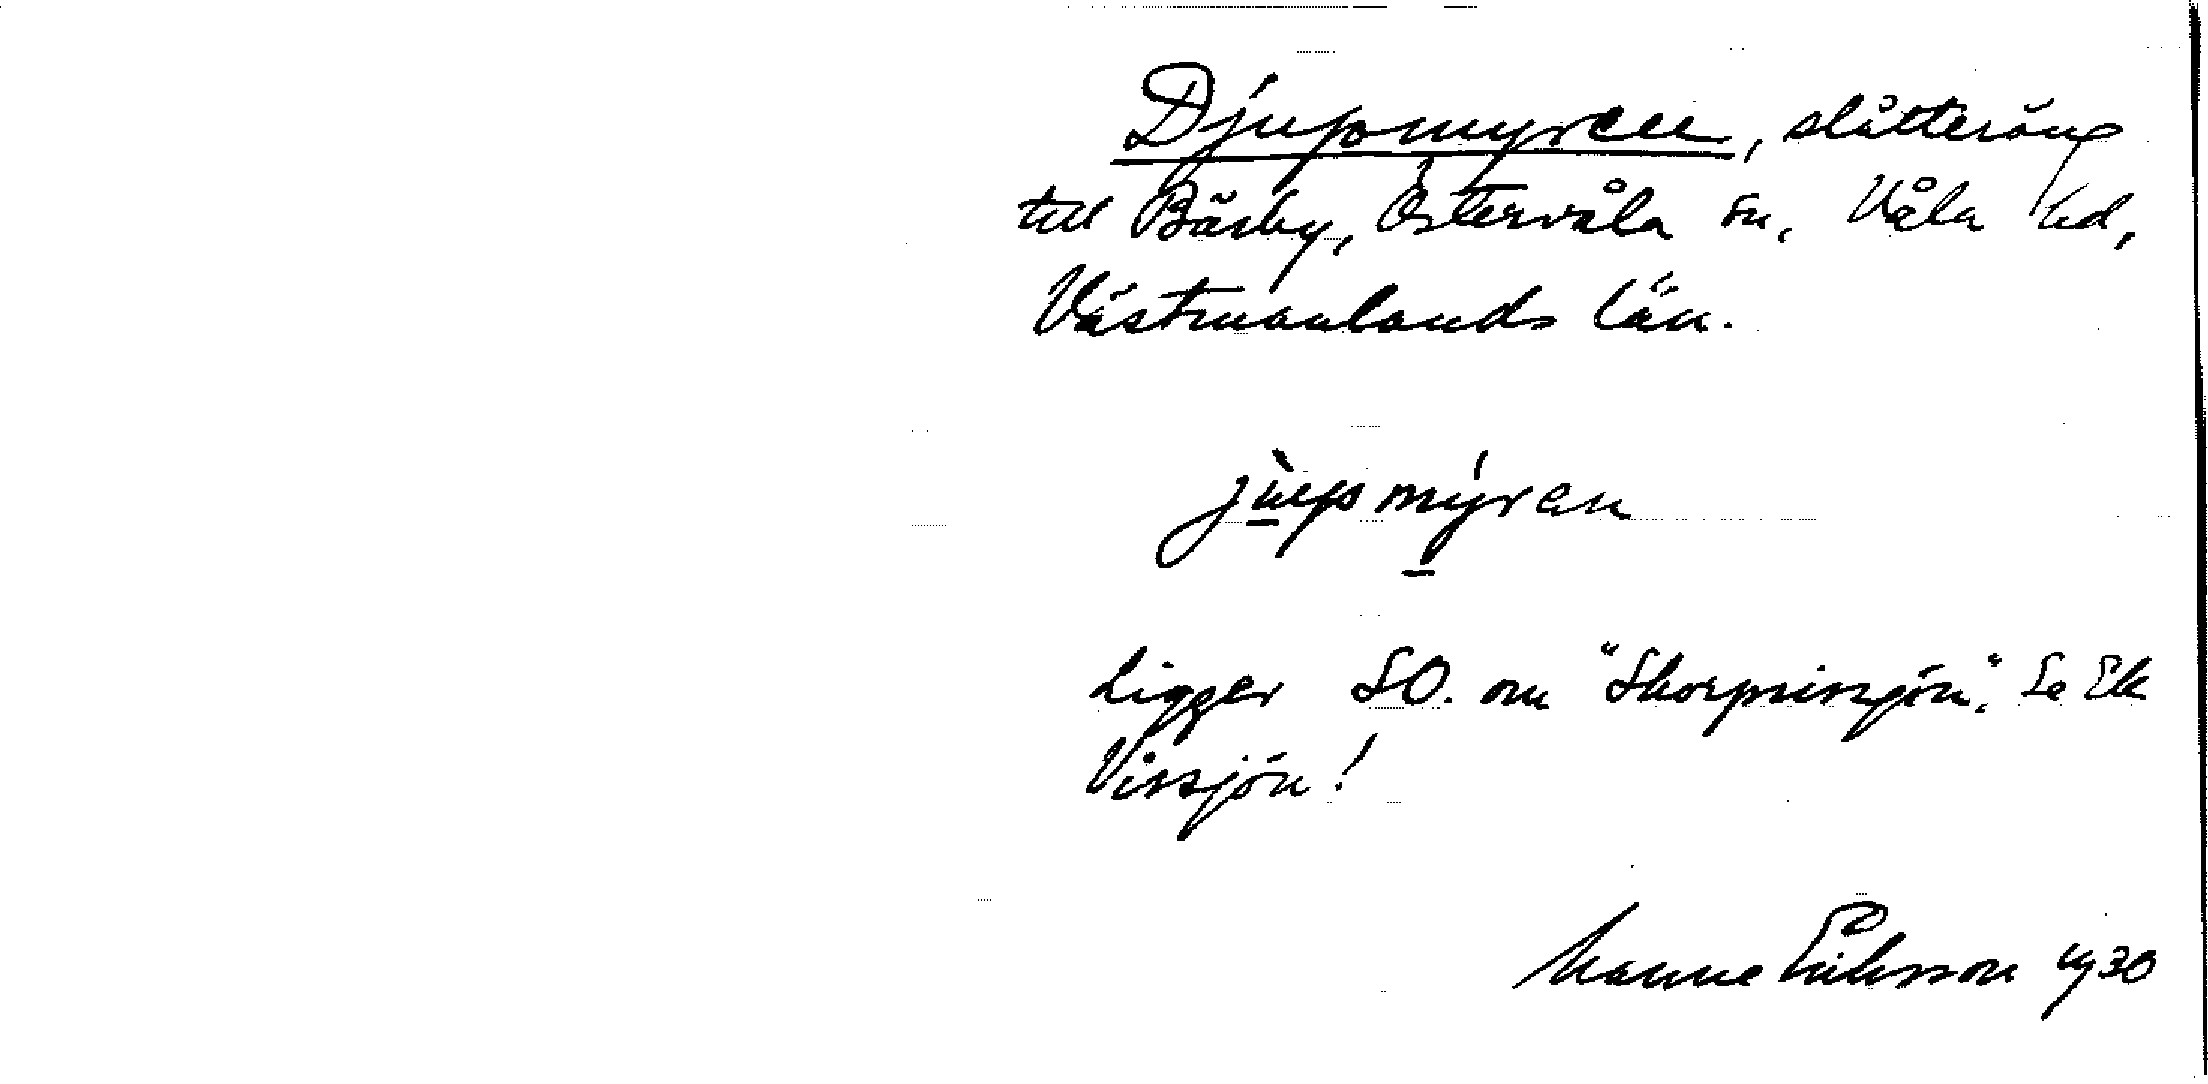 Djupmyren, slåtteräng
till Bärby, Östervåla sn, Våla hd,
Västmanlands län.
jùpmýren
Ligger SO. om "Skorpsissjön". Se Ek
Vissjön!
Manne Eriksson 1930